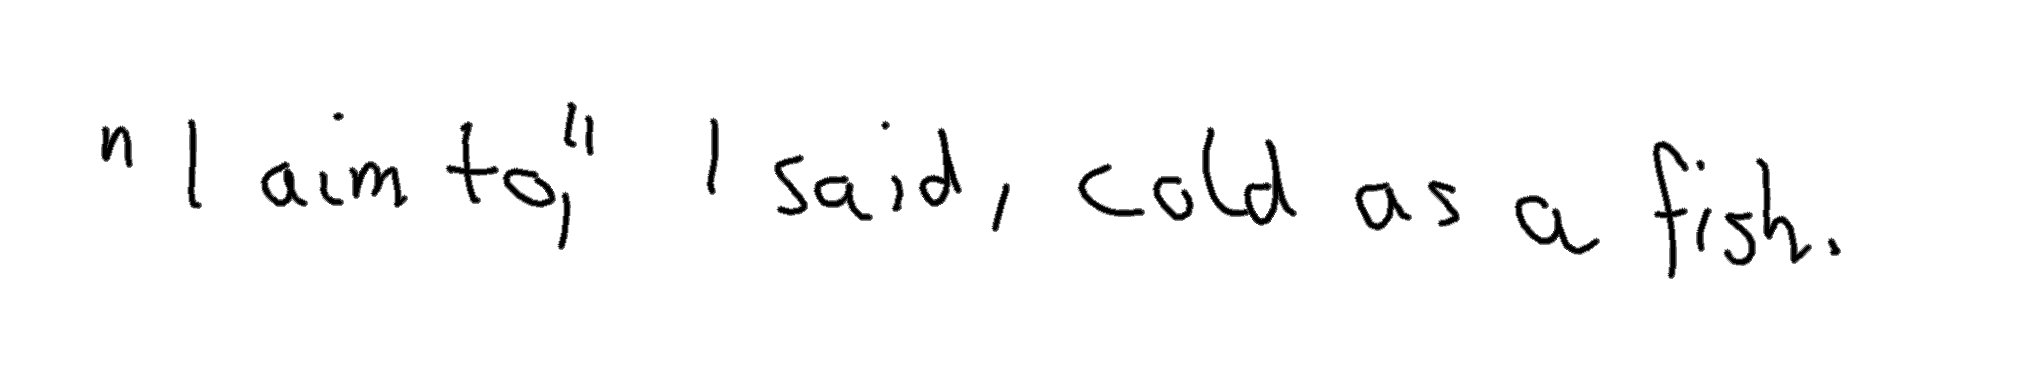 "I aim to," I said, cold as a fish.